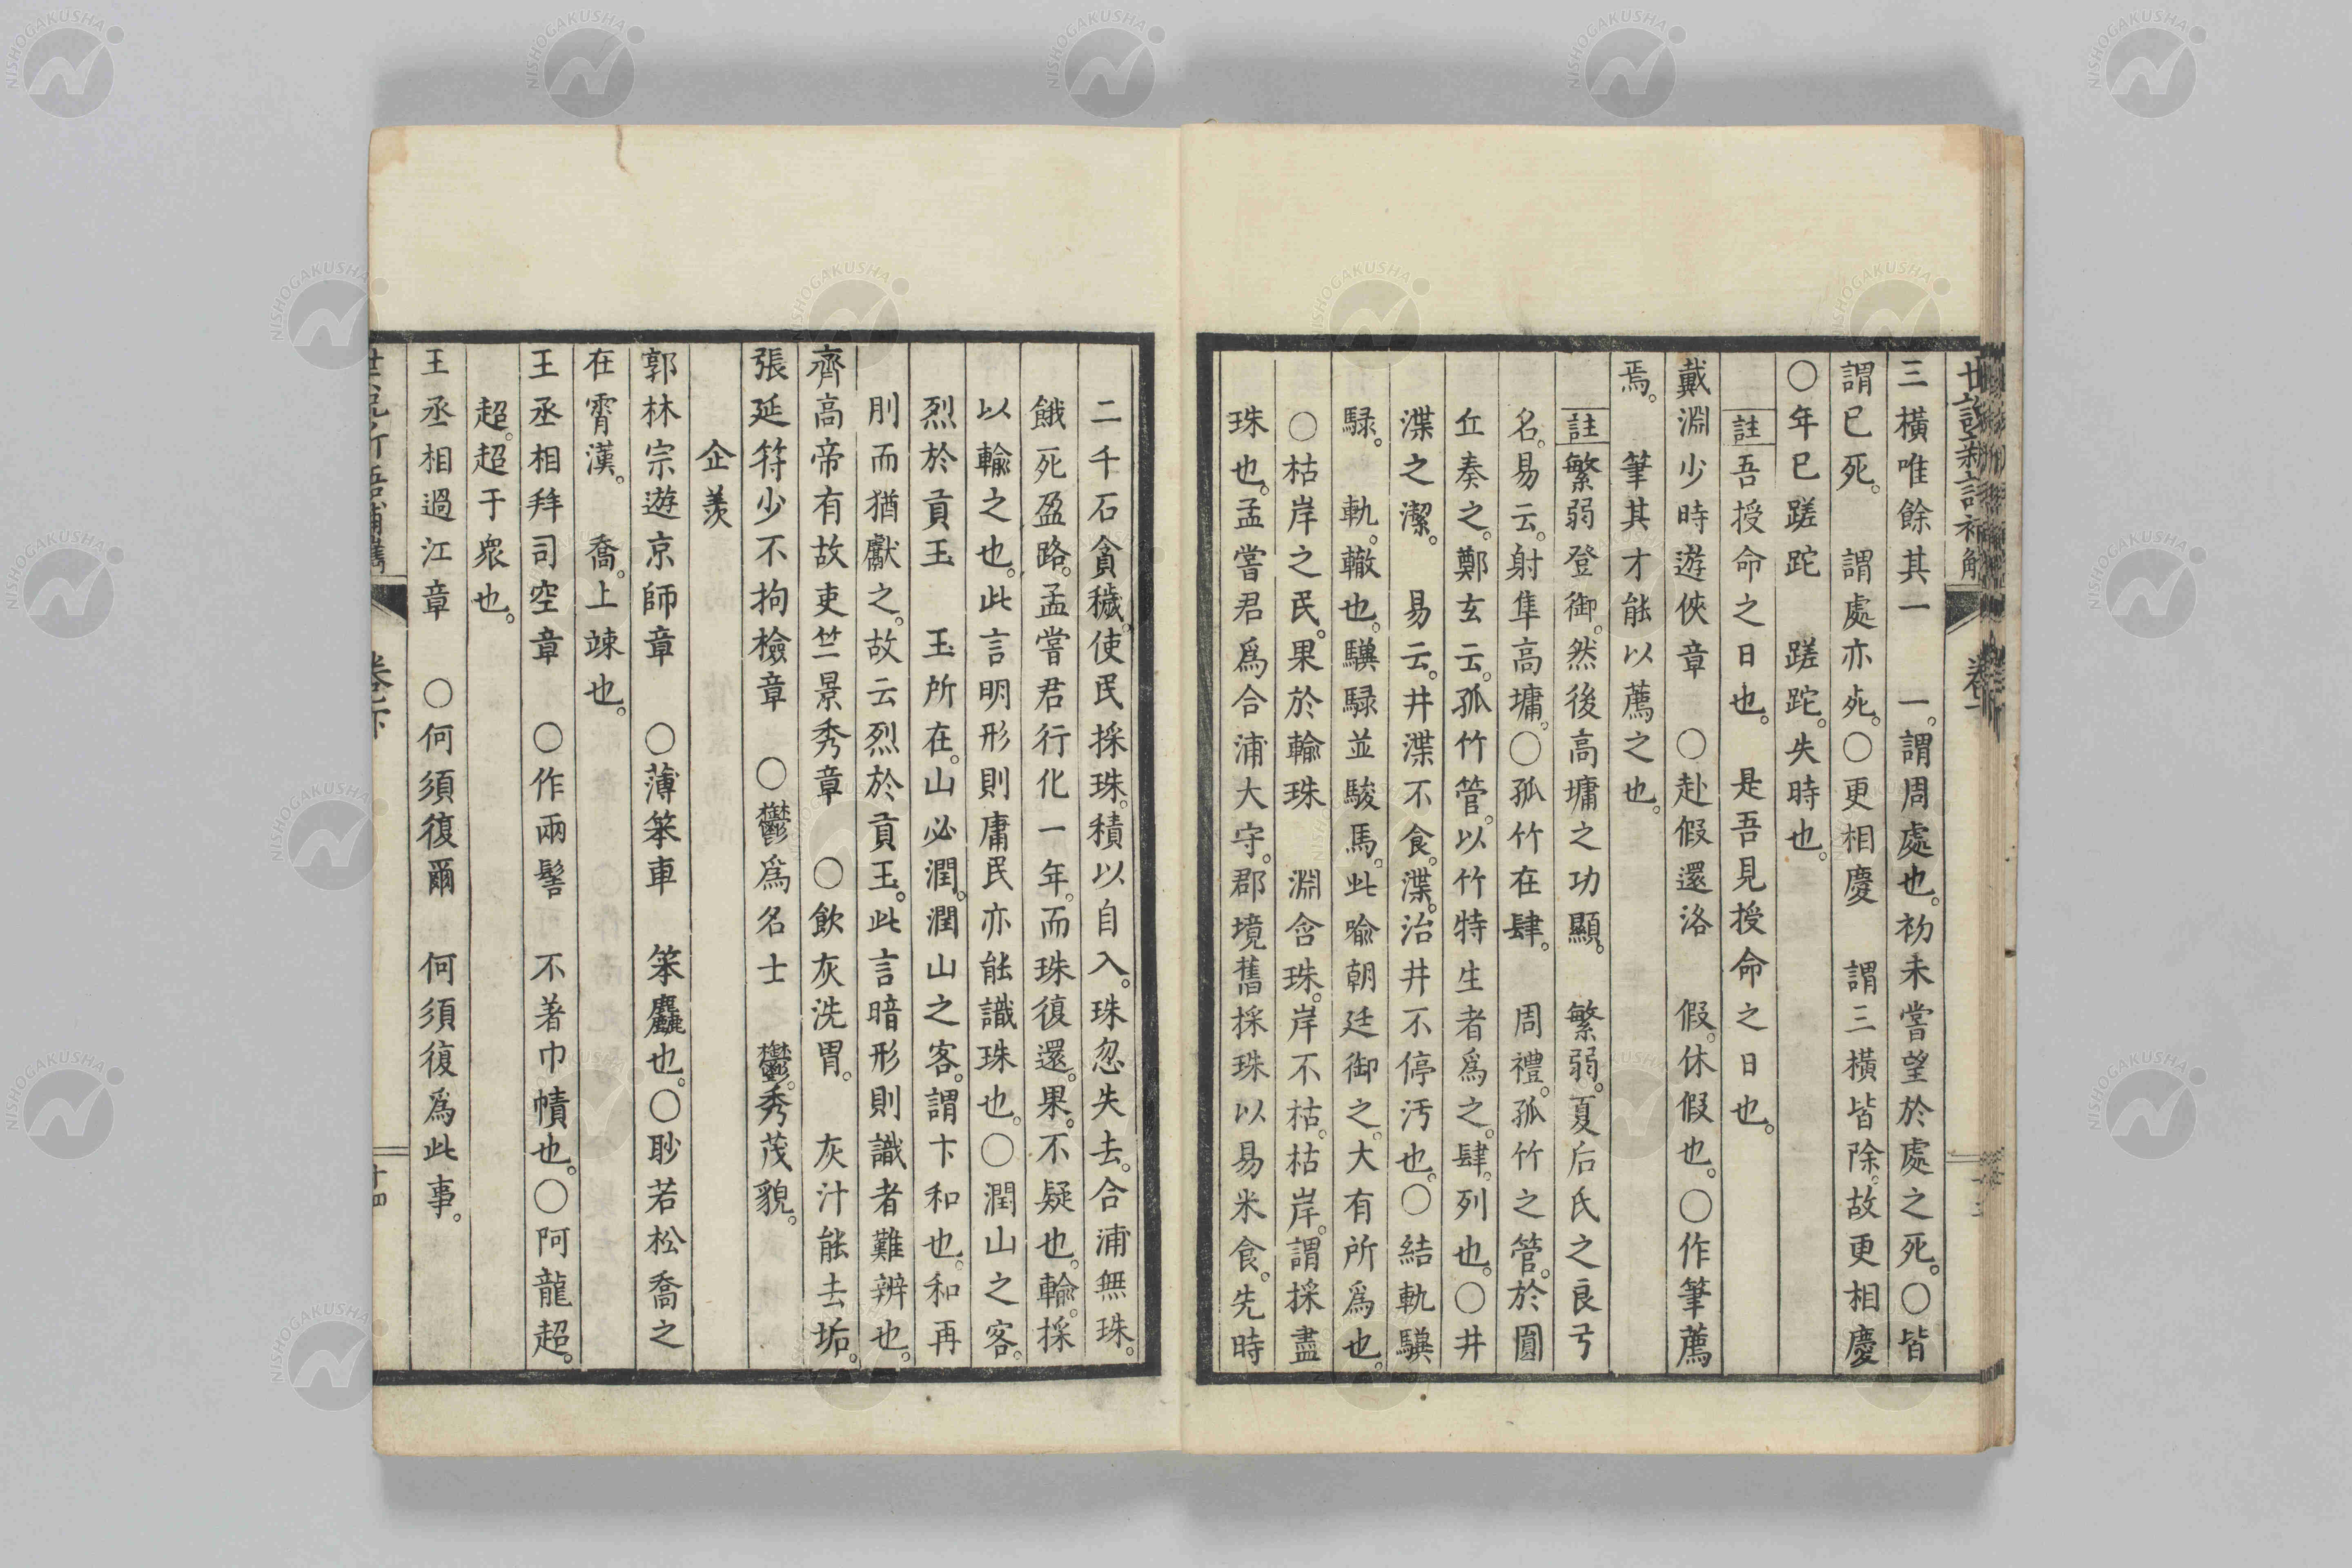 三橫唯餘其一　一。謂周處也。初未嘗望於處之死。○皆
謂已死。　謂處亦死。○更相慶　謂三橫皆除。故更相慶
○年已蹉跎　蹉跎。失時也。
註吾授命之日也。　是吾見授命之日也。
戴淵少時遊俠章　○赴假還洛　假。休假也。○作筆薦
焉。　筆其才能以薦之也。
註繁弱登御。然後高墉之功顯。　繁弱。夏后氏之良弓
名。易云。射隼高墉。○孤竹在肆。　周禮。孤竹之管。於圓
丘奏之。鄭玄云。孤竹管。以竹特生者爲之。肆。列也。○井
渫之潔。　易云。井渫不食。渫。治井不停汚也。○結軌驥
騄。　軌。轍也。驥騄並駿馬。此喩朝廷御之。大有所爲也。
○枯岸之民。果於輸珠　淵含珠。岸不枯。枯岸。謂採盡
珠也。孟嘗君爲合浦大守。郡境舊採珠以易米食。先時
二千石貪穢。使民採珠。積以自入。珠忽失去。合浦無珠。
餓死盈路。孟嘗君行化一年。而珠復還。果。不疑也。輸。採
以輸之也。此言明形則庸民亦能識珠也。○潤山之客。
烈於貢玉　玉所在。山必潤。潤山之客。謂卞和也。和再
刖而猶獻之。故云烈於貢玉。此言暗形則識者難辨也。
齊高帝有故吏竺景秀章　○飮灰洗胃。　灰汁能去垢。
張延符少不拘檢章　○鬱爲名士　鬱。秀茂貌。
企羨
郭林宗遊京師章　○薄笨車　笨麤也。○眇若松喬之
在霄漢。　喬。上竦也。
王丞相拜司空章　○作兩髻　不著巾幘也。○阿龍超。
超。超于衆也。
王丞相過江章　○何須復爾　何須復爲此事。
十四